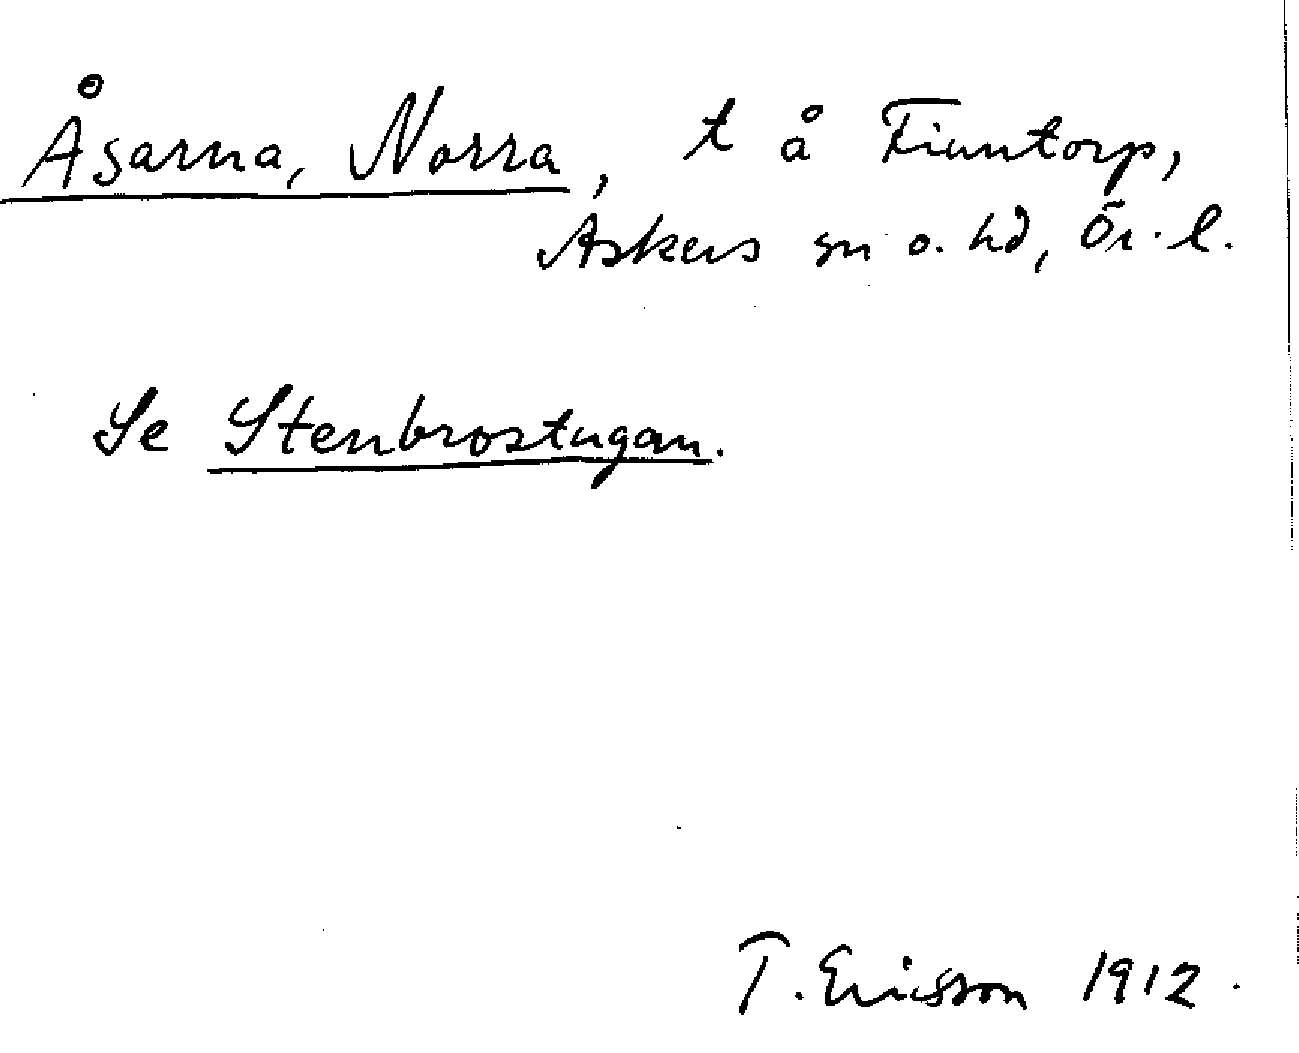 Åsarna, Norra, t å Finntorp,
Askers sn o. hd, Ör. l.
Se Stenbrostugan.
T. Ericsson 1912.